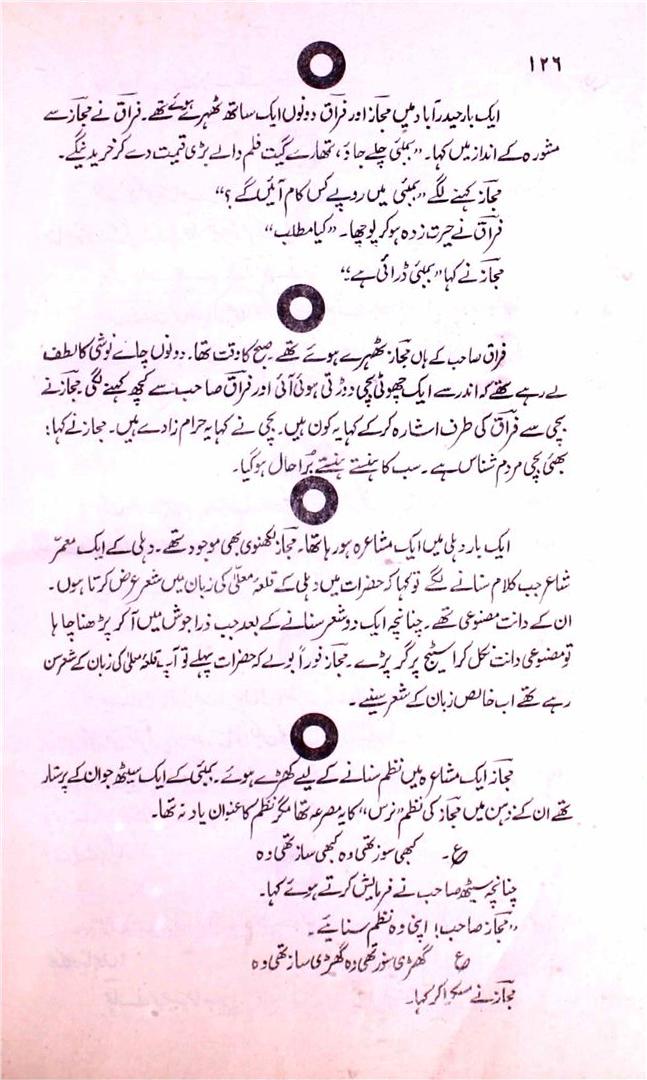 ۱۲۶
ایک بار حیدرآباد میں مجاز اور فراق دونوں ایک ساتھ ٹھہرے ہوئے تھے۔ فراق نے مجاز سے
مشورہ کے انداز میں کہا۔ "بمبئی چلے جاؤ، تمھارے گیت فلم والے بڑی قیمت دے کر خریدینگے۔
مجاز کہنے لگے "بمبئی میں روپے کس کام آئیں گے؟"
فراق نے حیرت زدہ ہو کر پوچھا۔ "کیا مطلب"
مجاز نے کہا "بمبئی ڈرائی ہے"
فراق صاحب کے ہاں مجاز ٹھہرے ہوئے تھے۔ صبح کا وقت تھا۔ دونوں چائے نوشی کا لطف
لے رہے تھے کہ اندر سے ایک چھوٹی بچی دوڑتی ہوئی آئی اور فراق صاحب سے کچھ کہنے لگی مجاز نے
بچی سے فراق کی طرف اشارہ کر کے کہا یہ کون ہیں۔ بچی نے کہا یہ حرام زادے ہیں۔ مجاز نے کہا؛
بھئی بچی مردم شناس ہے۔ سب کا ہنستے ہنستے برا حال ہوگیا۔
ایک بار دہلی میں ایک مشاعرہ ہو رہا تھا۔ مجاز لکھنوی بھی موجود تھے۔ دہلی کے ایک معمّر
شاعر جب کلام سنانے لگے تو کہا کہ حضرات میں دہلی کے قلعۂ معلّیٰ کی زبان میں شعر عرض کرتا ہوں۔
ان کے دانت مصنوعی تھے۔ چنانچہ ایک دو شعر سنانے کے بعد جب ذرا جوش میں آ کر پڑھنا چاہا
تو مصنوعی دانت نکل کر اسٹیج پر گر پڑے۔ مجاز فوراً بولے کہ حضرات پہلے تو آپ قلعۂ معلیٰ کی زبان کے شعر سن
رہے تھے اب خالص زبان کے شعر سنیے۔
مجاز ایک مشاعرہ میں نظم سنانے کے لیے کھڑے ہوئے۔ بمبئی کے ایک سیٹھ جو ان کے پرستار
تھے ان کے ذہن میں مجاز کی نظم "نرس" کا یہ مصرعہ تھا مگر نظم کا عنوان یاد نہ تھا۔
ع۔ کبھی سوز تھی وہ کبھی ساز تھی وہ
چنانچہ سیٹھ صاحب نے فرمایش کرتے ہوئے کہا۔
"مجاز صاحب! اپنی وہ نظم سنائیے۔
ع گھڑی سوز تھی وہ گھڑی ساز تھی وہ
مجاز نے مسکرا کر کہا۔